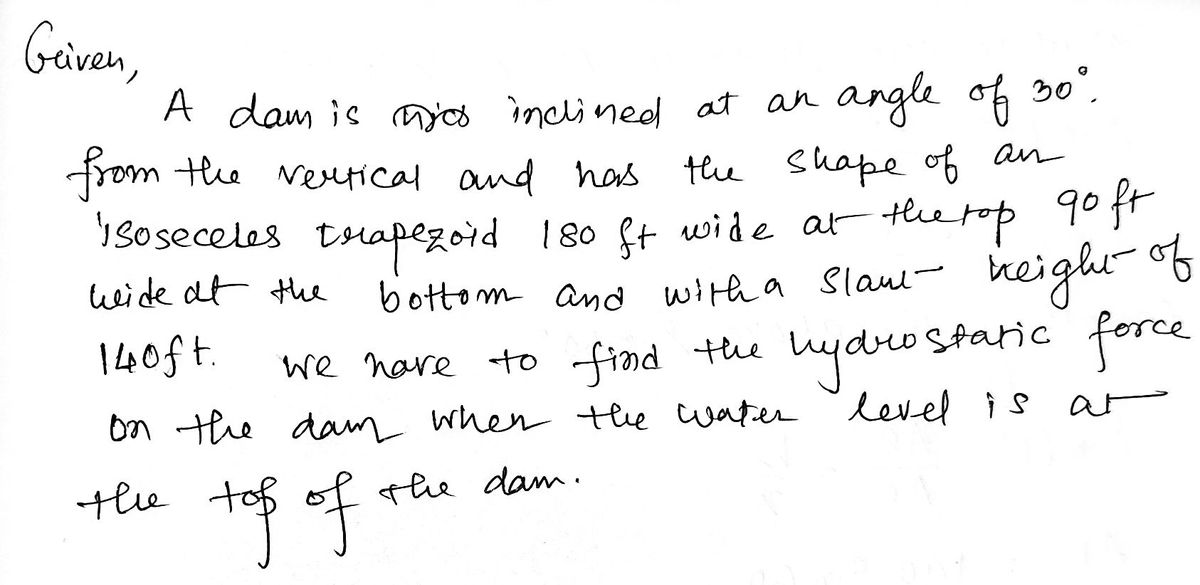 Given,
A dam is inclined at an angle of 30°.
from the vertical and has the shape of an
isoseceles trapezoid 180 ft wide at the top 90 ft
wide at the bottom and with a slant height of
140ft. We have to find the hydrostatic force
on the dam when the water level is at
the top of the dam.